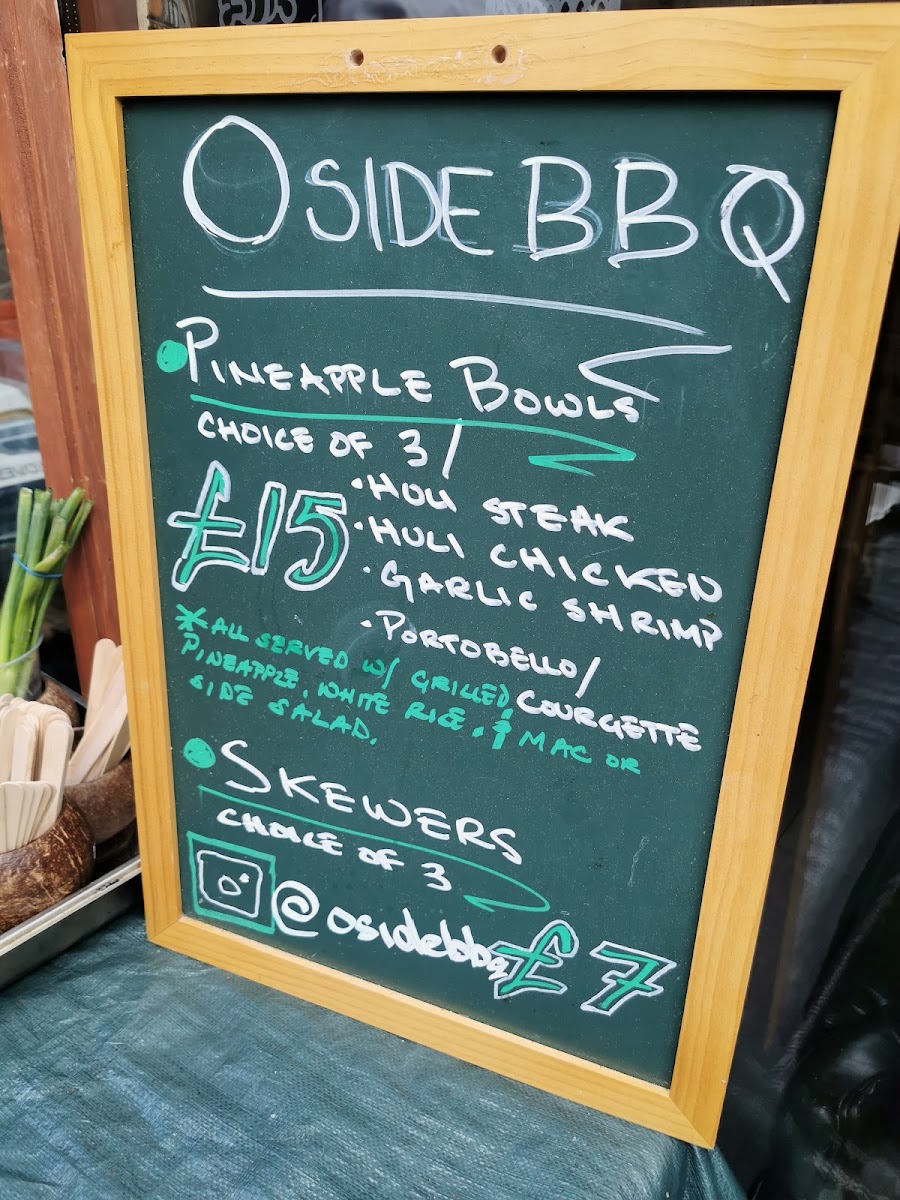 OSIDE BBQ
PINEAPPLE BOWLS
CHOICE OF 3/
£15
• HULI STEAK
• HULI CHICKEN
• GARLIC SHRIMP
• PORTOBELLO/
COURGETTE
* ALL SERVED W/ GRILLED
PINEAPPLE, WHITE RICE, & MAC OR
SIDE SALAD.
SKEWERS
CHOICE OF 3
@osidebbq
£7